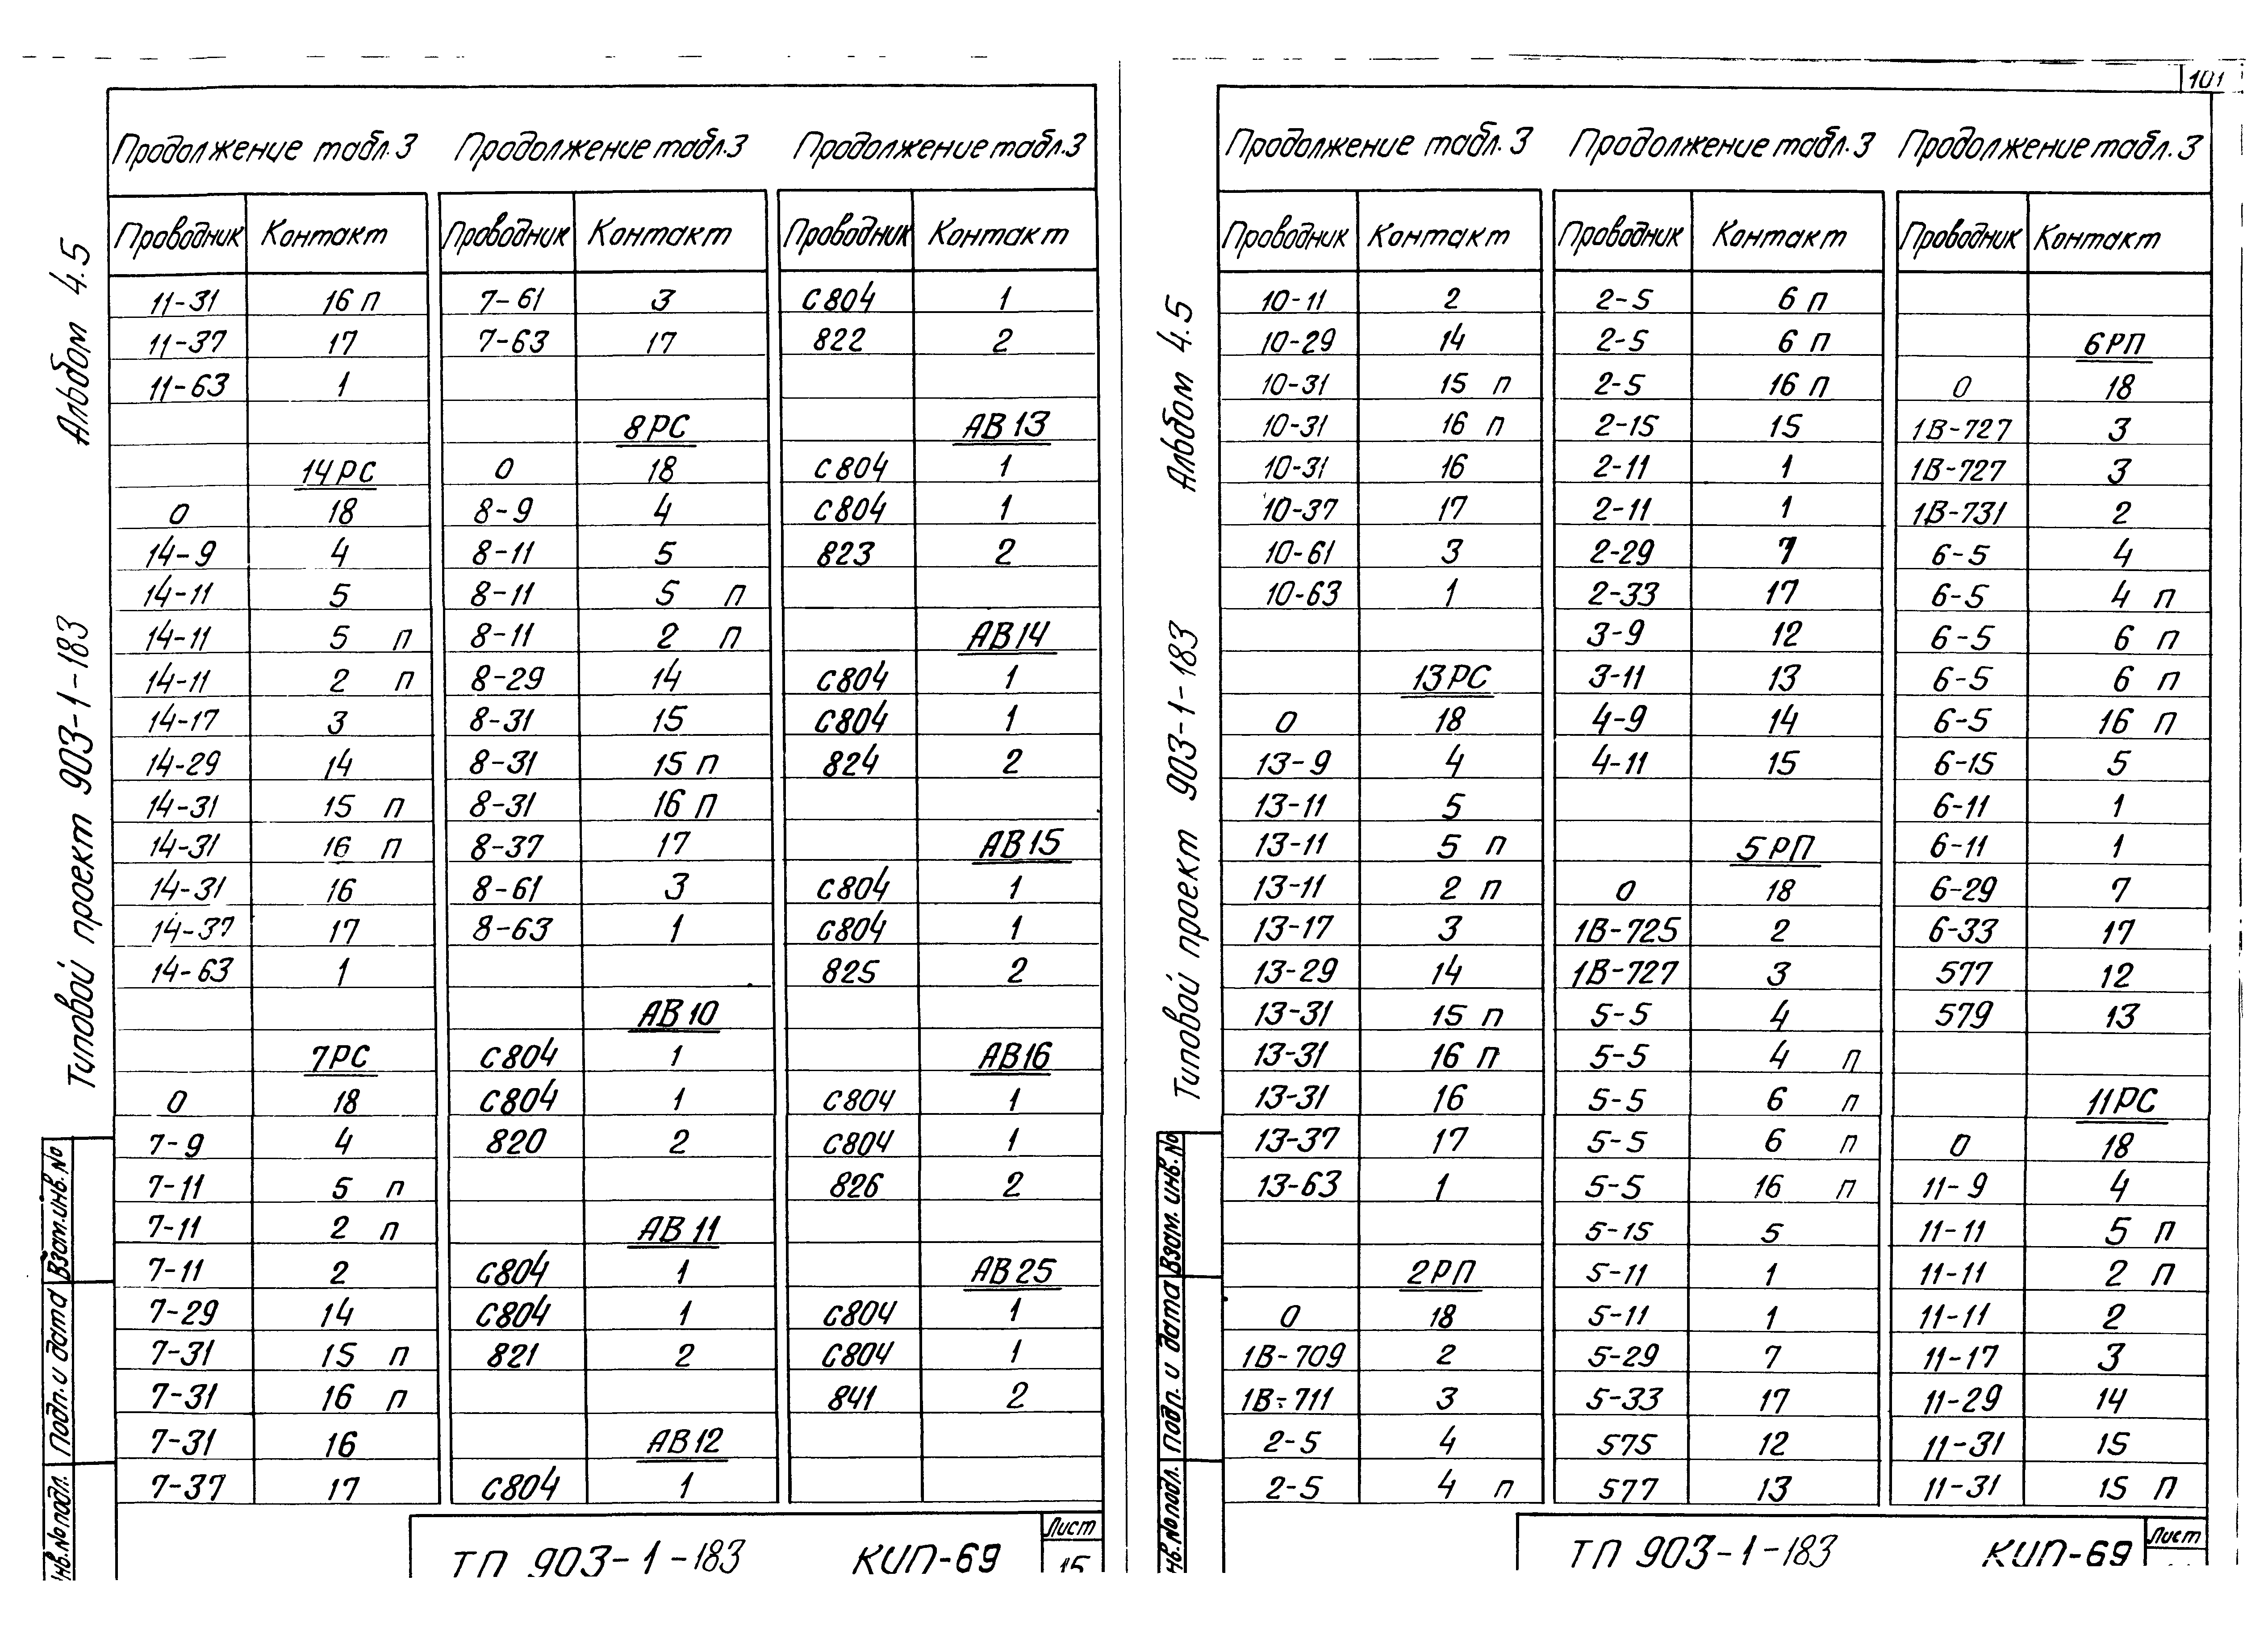 Альбом 4.5
Типовой проект 903-1-183
Взам.инв.№
Подп. и дата
Инв.№подл.
Продолжение табл.3
Проводник Контакт
11-31 16 п
11-37 17
11-63 1
14РС
0 18
14-9 4
14-11 5
14-11 5 п
14-11 2 п
14-17 3
14-29 14
14-31 15 п
14-31 16 п
14-31 16
14-37 17
14-63 1
7РС
0 18
7-9 4
7-11 5 п
7-11 2 п
7-11 2
7-29 14
7-31 15 п
7-31 16 п
7-31 16
7-37 17
Продолжение табл.3
Проводник Контакт
7-61 3
7-63 17
8РС
0 18
8-9 4
8-11 5
8-11 5 п
8-11 2 п
8-29 14
8-31 15
8-31 15 п
8-31 16 п
8-37 17
8-61 3
8-63 1
АВ10
С804 1
С804 1
820 2
АВ11
С804 1
С804 1
821 2
АВ12
С804 1
Продолжение табл.3
Проводник Контакт
С804 1
822 2
АВ13
С804 1
С804 1
823 2
АВ14
С804 1
С804 1
824 2
АВ15
С804 1
С804 1
825 2
АВ16
С804 1
С804 1
826 2
АВ25
С804 1
С804 1
841 2
ТП 903-1-183 КИП-69
Лист
15
101
Альбом 4.5
Типовой проект 903-1-183
Взам. инв.№
Подп. и дата
Инв.№подл.
Продолжение табл.3
Проводник Контакт
10-11 2
10-29 14
10-31 15 п
10-31 16 п
10-31 16
10-37 17
10-61 3
10-63 1
13РС
0 18
13-9 4
13-11 5
13-11 5 п
13-11 2 п
13-17 3
13-29 14
13-31 15 п
13-31 16 п
13-31 16
13-37 17
13-63 1
2РП
0 18
1В-709 2
1В-711 3
2-5 4
2-5 4 п
Продолжение табл.3
Проводник Контакт
2-5 6 п
2-5 6 п
2-5 16 п
2-15 15
2-11 1
2-11 1
2-29 7
2-33 17
3-9 12
3-11 13
4-9 14
4-11 15
5РП
0 18
1В-725 2
1В-727 3
5-5 4
5-5 4 п
5-5 6 п
5-5 6 п
5-5 16 п
5-15 5
5-11 1
5-11 1
5-29 7
5-33 17
575 12
577 13
Продолжение табл.3
Проводник Контакт
6РП
0 18
1В-727 3
1В-727 3
1В-731 2
6-5 4
6-5 4 п
6-5 6 п
6-5 6 п
6-5 16 п
6-15 5
6-11 1
6-11 1
6-29 7
6-33 17
577 12
579 13
11РС
0 18
11-9 4
11-11 5 п
11-11 2 п
11-11 2
11-17 3
11-29 14
11-31 15
11-31 15 п
ТП 903-1-183 КИП-69
Лист